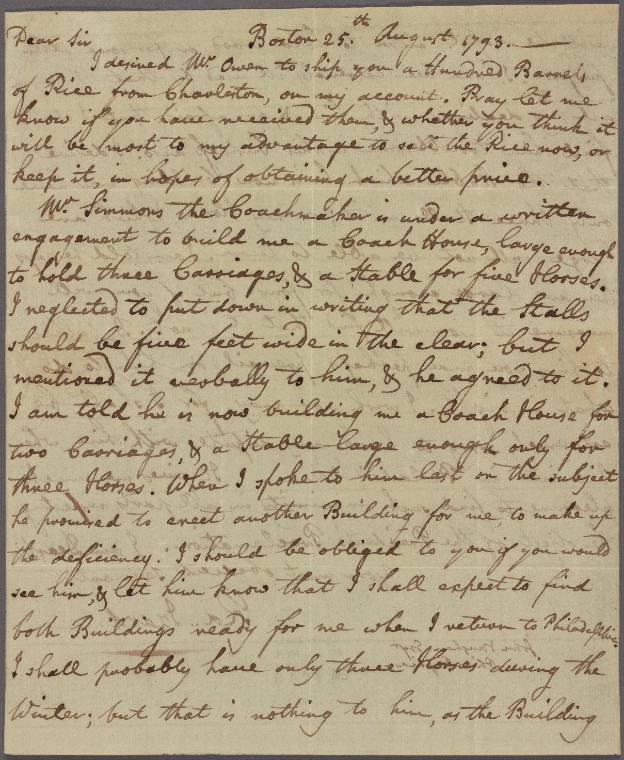 Dear Sir Boston 25.th August 1793.
I desired Mr. Owen to ship you a Hundred Barrels
of Rice from Charleston, on my account. Pray let me
know if you have received them, & whether you think it
will be most to my advantage to sell the Rice now, or
keep it, in hopes of obtaining a better price.
Mr. Simmons the Coachmaker is under a written
engagement to build me a Coach House, large enough
to hold three Carriages, & a Stable for five Horses.
I neglected to put down in writing that the Stalls
should be five feet wide in the clear; but I
mentioned it verbally to him, & he agreed to it.
I am told he is now building me a Coach House for
two Carriages, & a Stable large enough only for
three Horses. When I spoke to him last on the subject
he promised to erect another Building for me, to make up
the deficiency. I should be obliged to you if you would
see him, & let him know that I shall expect to find
both Buildings ready for me when I return to Philadelphia.
I shall probably have only three Horses during the
Winter; but that is nothing to him, as the Building